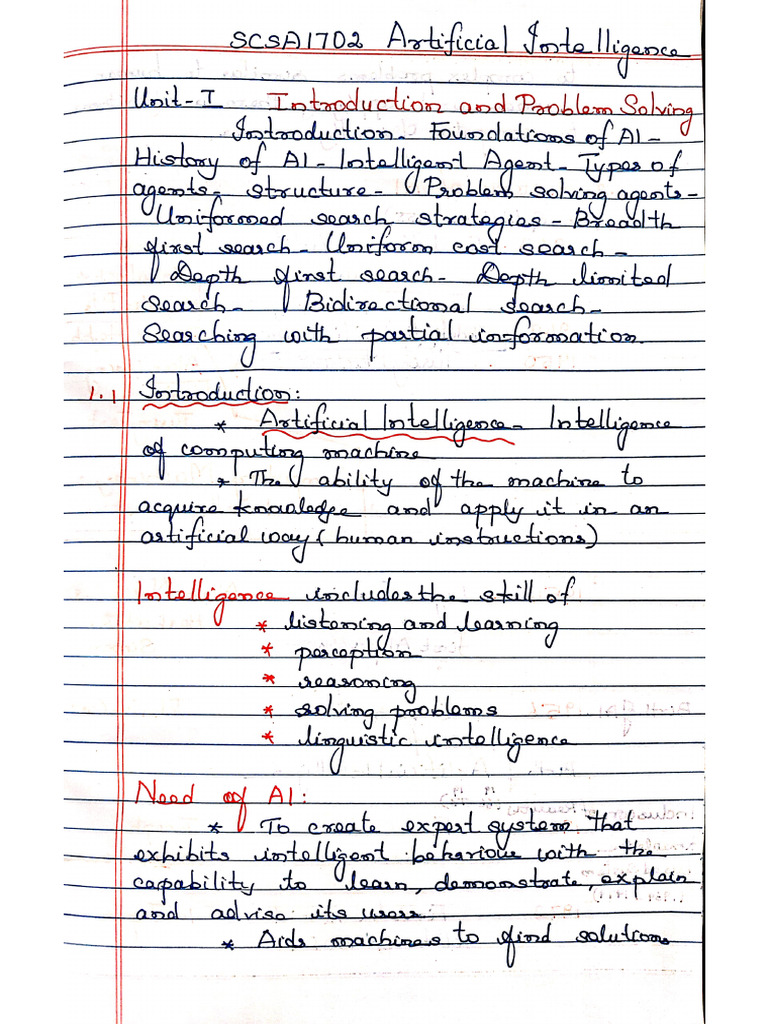 SCSA1702 Artificial Intelligence
Unit-I Introduction and Problem Solving
Introduction - Foundations of AI -
History of AI - Intelligent Agent - Types of
agents - structure - Problem solving agents -
Uniformed search strategies - Breadth
first search - Uniform cost search -
Depth first search - Depth limited
search - Bidirectional search -
Searching with partial information.
1.1 Introduction:
* Artificial Intelligence - Intelligence
of computing machine
* The ability of the machine to
acquire knowledge and apply it in an
artificial way (human instructions)
Intelligence includes the skill of
* listening and learning
* perception
* reasoning
* solving problems
* linguistic intelligence
Need of AI:
* To create expert system that
exhibits intelligent behaviour with the
capability to learn, demonstrate, explain
and advise its users.
* Aids machines to find solutions